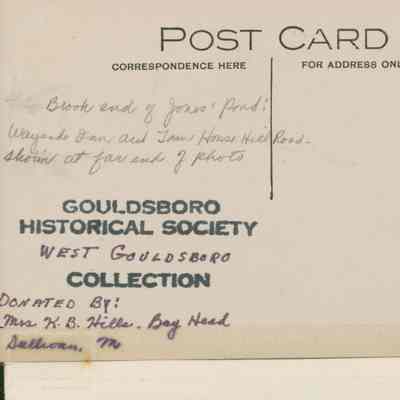 POST CARD
CORRESPONDENCE HERE
FOR ADDRESS ONL
Brook end of Jones' Pond.
Wayside Inn and Town House Hill Road
shown at far end of photo
GOULDSBORO
HISTORICAL SOCIETY
WEST GOULDSBORO
COLLECTION
DONATED BY:
Mrs K. B. Hills. Bay Head
Sullivan, M